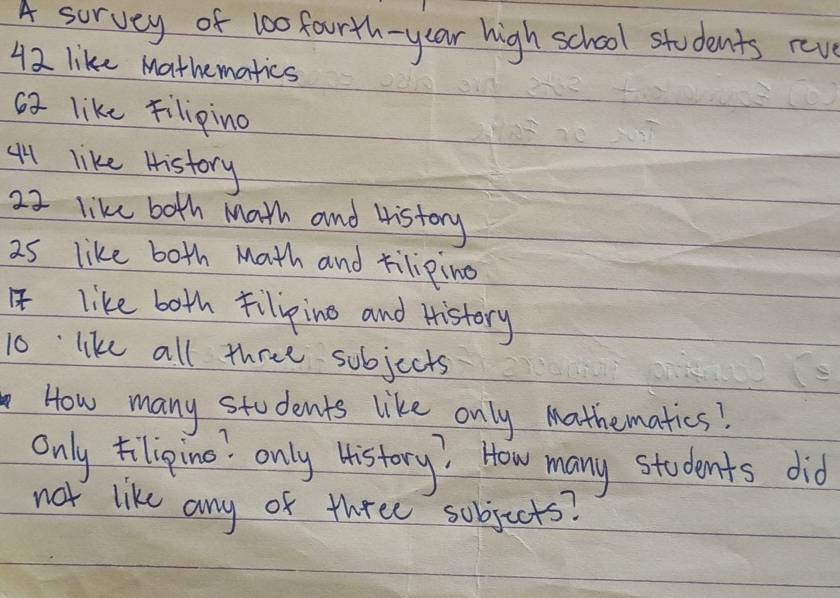 A survey of 100 fourth-year high school students reve
42 like Mathematics
62 like Filipino
44 like History
22 like both Math and History
25 like both Math and Filipino
17 like both Filipino and History
10 like all three subjects
How many students like only Mathematics?
Only Filipino? only History? How many students did
not like any of three subjects?